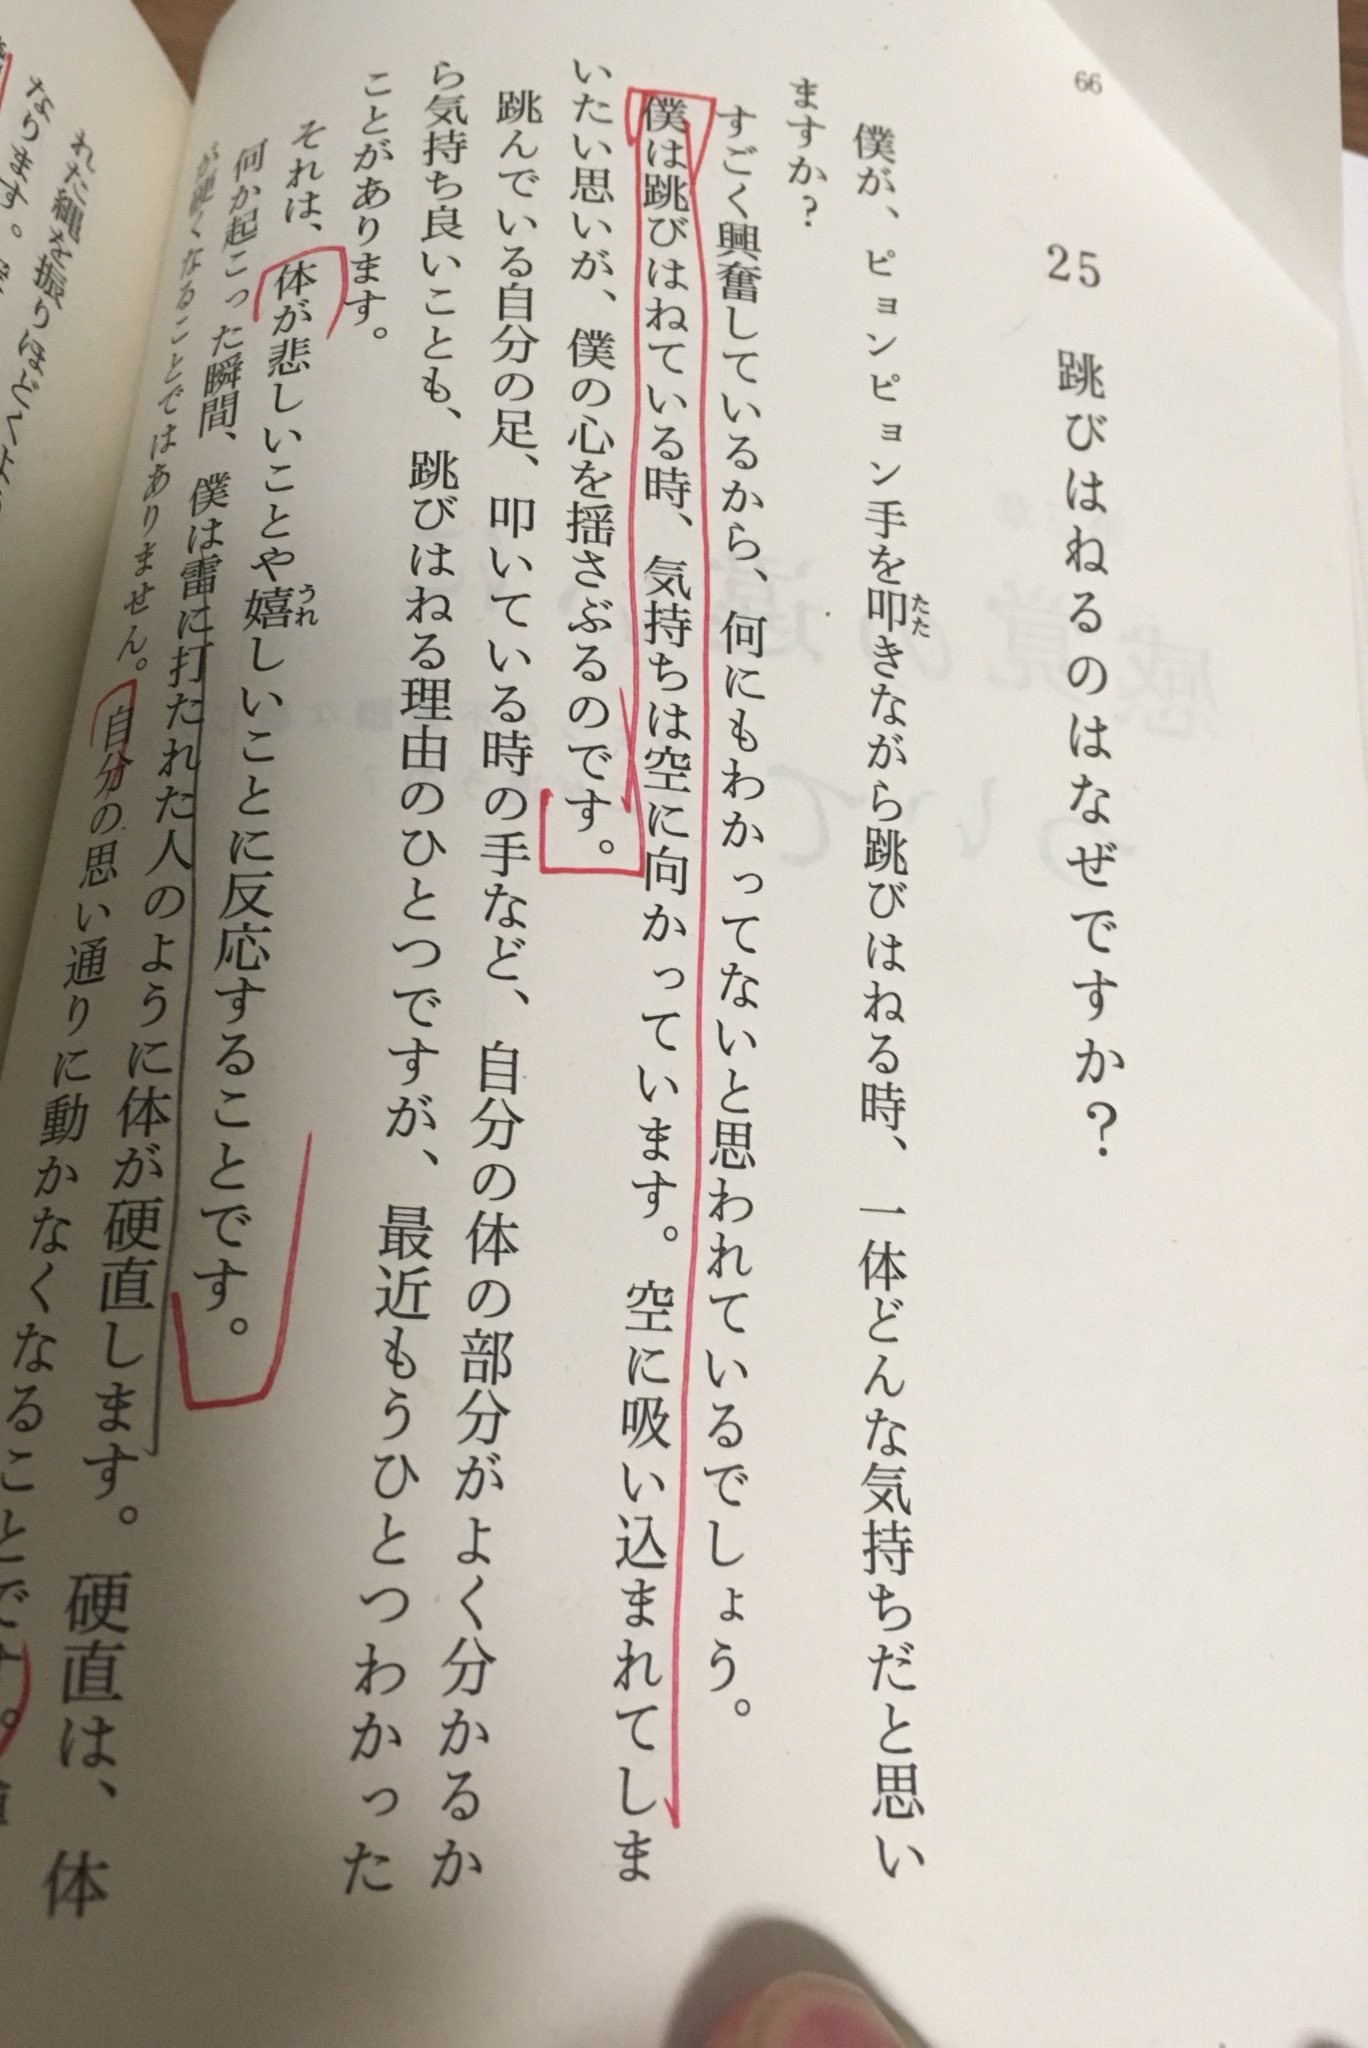 66
25 跳びはねるのはなぜですか？
僕が、ピョンピョン手を叩きながら跳びはねる時、一体どんな気持ちだと思い
たた
ますか？
すごく興奮しているから、何にもわかってないと思われているでしょう。
僕は跳びはねている時、気持ちは空に向かっています。空に吸い込まれてしま
いたい思いが、僕の心を揺さぶるのです。
跳んでいる自分の足、叩いている時の手など、自分の体の部分がよく分かるか
ら気持ち良いことも、跳びはねる理由のひとつですが、最近もうひとつわかった
ことがあります。
それは、体が悲しいことや嬉しいことに反応することです。
うれ
何か起こった瞬間、僕は雷に打たれた人のように体が硬直します。硬直は、体
が硬くなることではありません。自分の思い通りに動かなくなることです。
れた縄を振りほどくよう
なります。